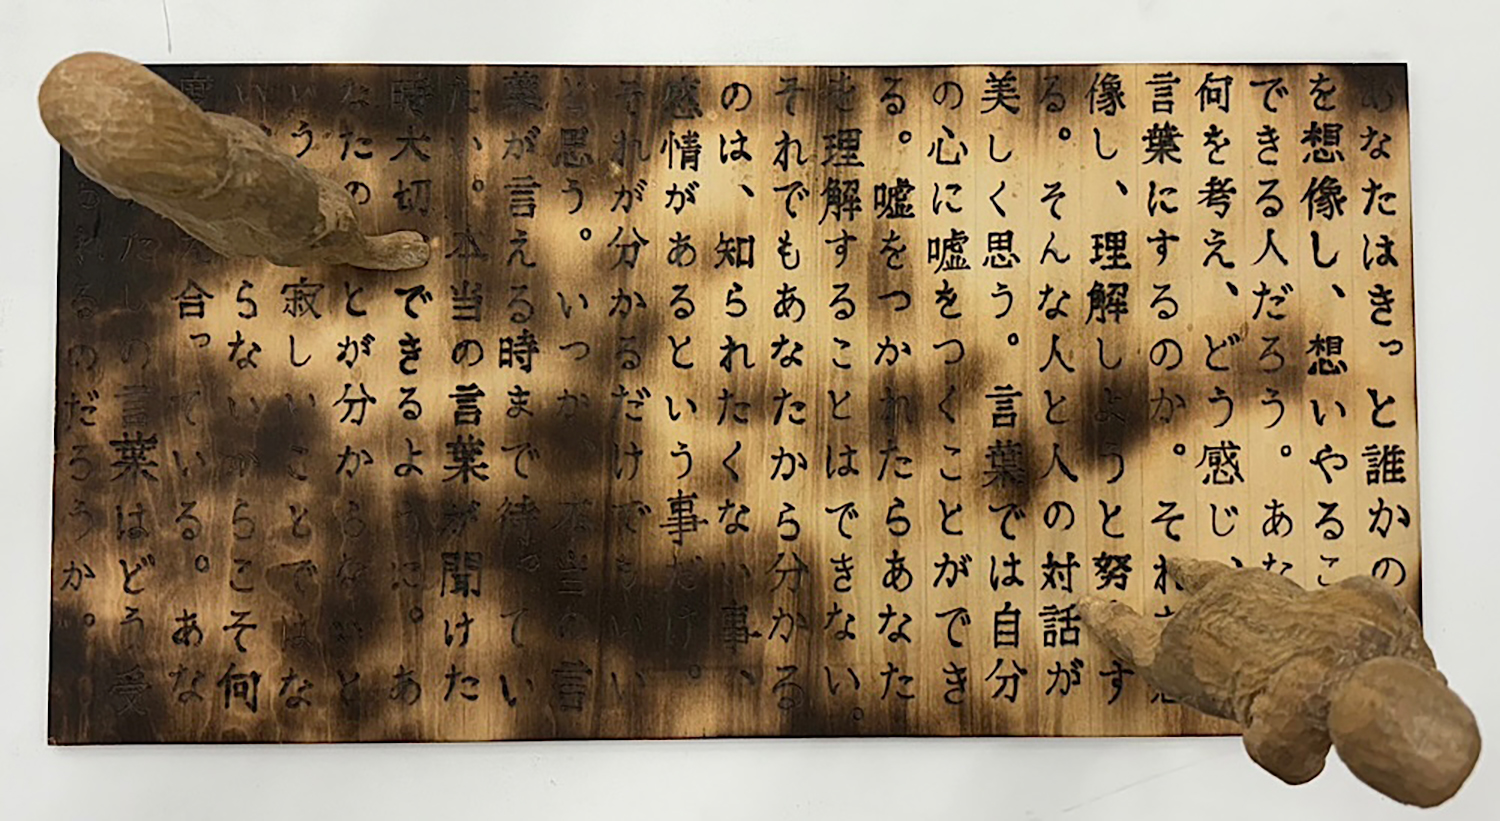 あなたはきっと誰かの
を想像し、想いやるこ
できる人だろう。あな
何を考え、どう感じ、
言葉にするのか。それ
像し、理解しようと努す
る。そんな人と人の対話が
美しく思う。言葉では自分
の心に嘘をつくことができ
る。嘘をつかれたらあなた
を理解することはできない。
それでもあなたから分かる
のは、知られたくない事、
感情があるという事だけ。
それが分かるだけでもいい
と思う。いつか、本当の言
葉が言える時まで待ってい
たい。本当の言葉が聞けた
時大切できるように。あ
なたのとが分からないと
いう寂しいことではな
い。らないからこそ何
度合っている。あな
たしの言葉はどう受
られるのだろうか。